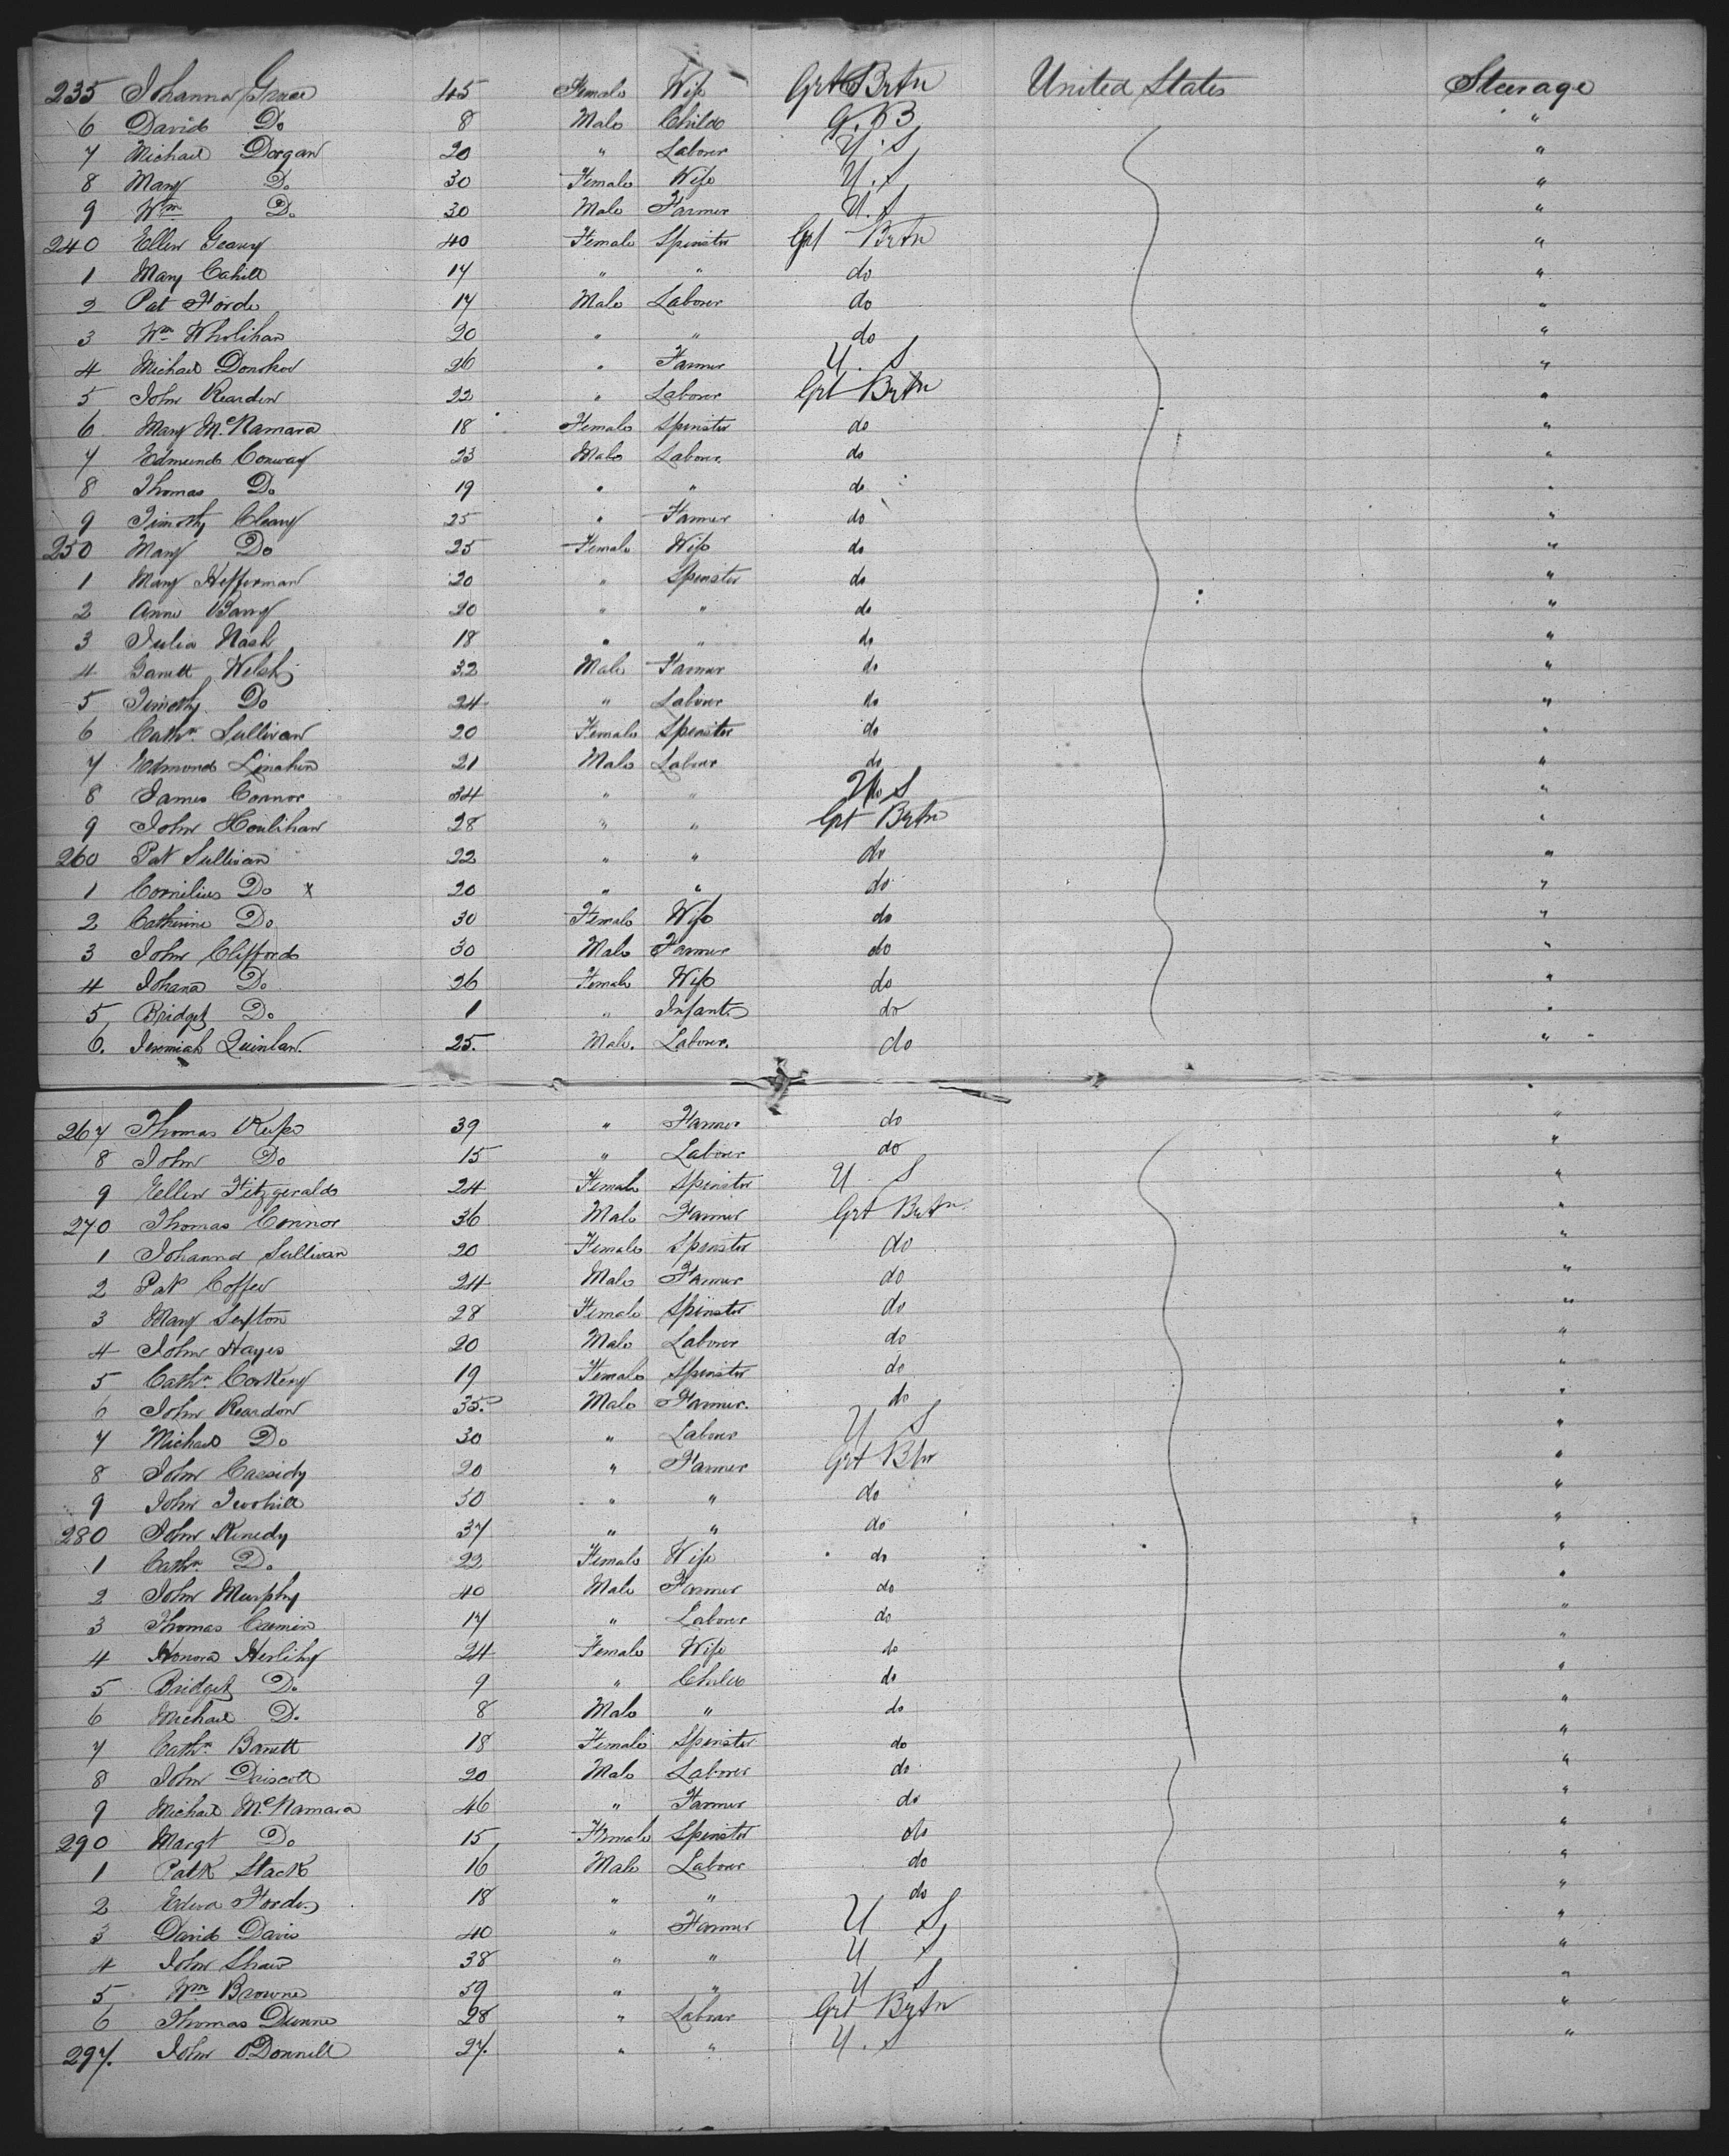 235 Johanna Grace 45 Female Wife Grt Brtn United States Steerage
6 David Do 8 Male Child G. B "
7 Michael Dorgan 20 " Laborer U. S "
8 Mary Do 30 Female Wife U. S "
9 Wm Do 30 Male Farmer U. S "
240 Ellen Geary 40 Female Spinster Grt Brtn "
1 Mary Cahill 17 " " do "
2 Pat Forde 17 Male Laborer do "
3 Wm Wholihan 20 " " do "
4 Michael Donohoe 26 " Farmer U. S "
5 John Reardon 22 " Laborer Grt Brtn "
6 Mary McNamara 18 Female Spinster do "
7 Edmund Conway 23 Male Laborer do "
8 Thomas Do 19 " " do "
9 Timothy Cleary 25 " Farmer do "
250 Mary Do 25 Female Wife do "
1 Mary Hefferman 20 " Spinster do "
2 Anne Barry 20 " " do "
3 Julia Nash 18 " " do "
4 Garrett Welsh 32 Male Farmer do "
5 Timothy Do 24 " Laborer do "
6 Cathn Sullivan 20 Female Spinster do "
7 Edmond Linahin 21 Male Laborer do "
8 James Connor 34 " " U. S "
9 John Houlihan 28 " " Grt Brtn "
260 Pat Sullivan 22 " " do "
1 Cornilius Do x 20 " " do "
2 Catherine Do 30 Female Wife do "
3 John Clifford 30 Male Farmer do "
4 Johana Do 26 Female Wife do "
5 Bridget Do 1 " Infant do "
6. Jeremiah Quinlan. 25. Male. Laborer. do "
267 Thomas Keefe 39 " Farmer do "
8 John Do 15 " Laborer do "
9 Ellen Fitzgerald 24 Female Spinster U S "
270 Thomas Connor 36 Male Farmer Grt Brtn "
1 Johanna Sullivan 20 Female Spinster do "
2 Pat Coffee 24 Male Farmer do "
3 Mary Sexton 28 Female Spinster do "
4 John Hayes 20 Male Laborer do "
5 Cathn Corkery 19 Female Spinster do "
6 John Reardon 35. Male Farmer. do "
7 Michael Do 30 " Laborer U S "
8 John Cassidy 20 " Farmer Grt Btn "
9 John Twohill 30 " " do "
280 John Kenedy 37 " " do "
1 Cathn Do 22 Female Wife do "
2 John Murphy 40 Male Farmer do "
3 Thomas Cremin 17 " Laborer do "
4 Honora Herlihy 24 Female Wife do "
5 Bridget Do 9 " Child do "
6 Michael Do 8 Male " do "
7 Cathn Barrett 18 Female Spinster do "
8 John Driscoll 20 Male Laborer do "
9 Michael McNamara 46 " Farmer do "
290 Margt Do 15 Female Spinster do "
1 Patk Stack 16 Male Laborer do "
2 Forde 18 " " do "
3 David Davis 40 " Farmer U S "
4 John Shaw 38 " " U S "
5 Wm Browne 39 " " U S "
6 Thomas Dunne 28 " Laborer Grt Brtn "
297. John O'Donnell 27. " " U. S "